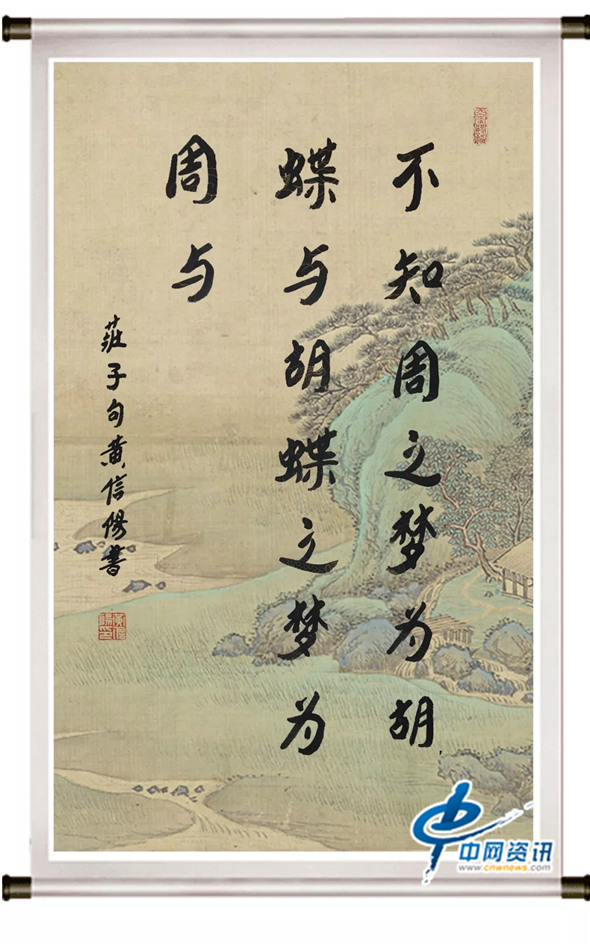 不知周之梦为胡
蝶与胡蝶之梦为
周与
莊子句黄信陽書
中网资讯
www.cnwnews.com